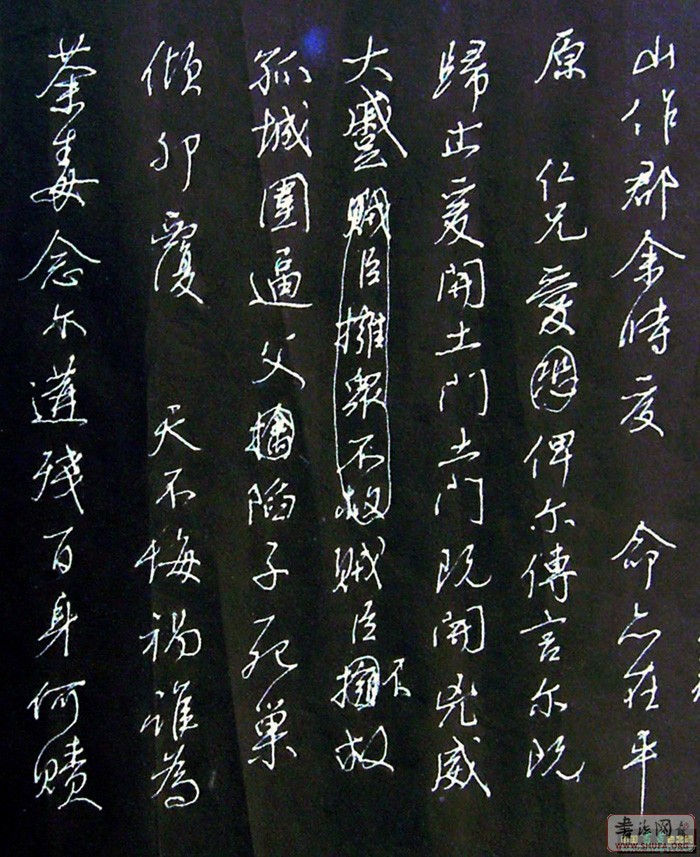 山作郡余時受 命亦在平
原 仁兄愛恐俾尔傳言尔既
歸止爰開土門土門既開兇威
大蹙賊臣擁眾不救賊臣擁不救
孤城圍逼父擒陷子死巢
傾卵覆 天不悔禍誰為
荼毒念尔遘殘百身何贖
書法网
www.SHUFA.ORG